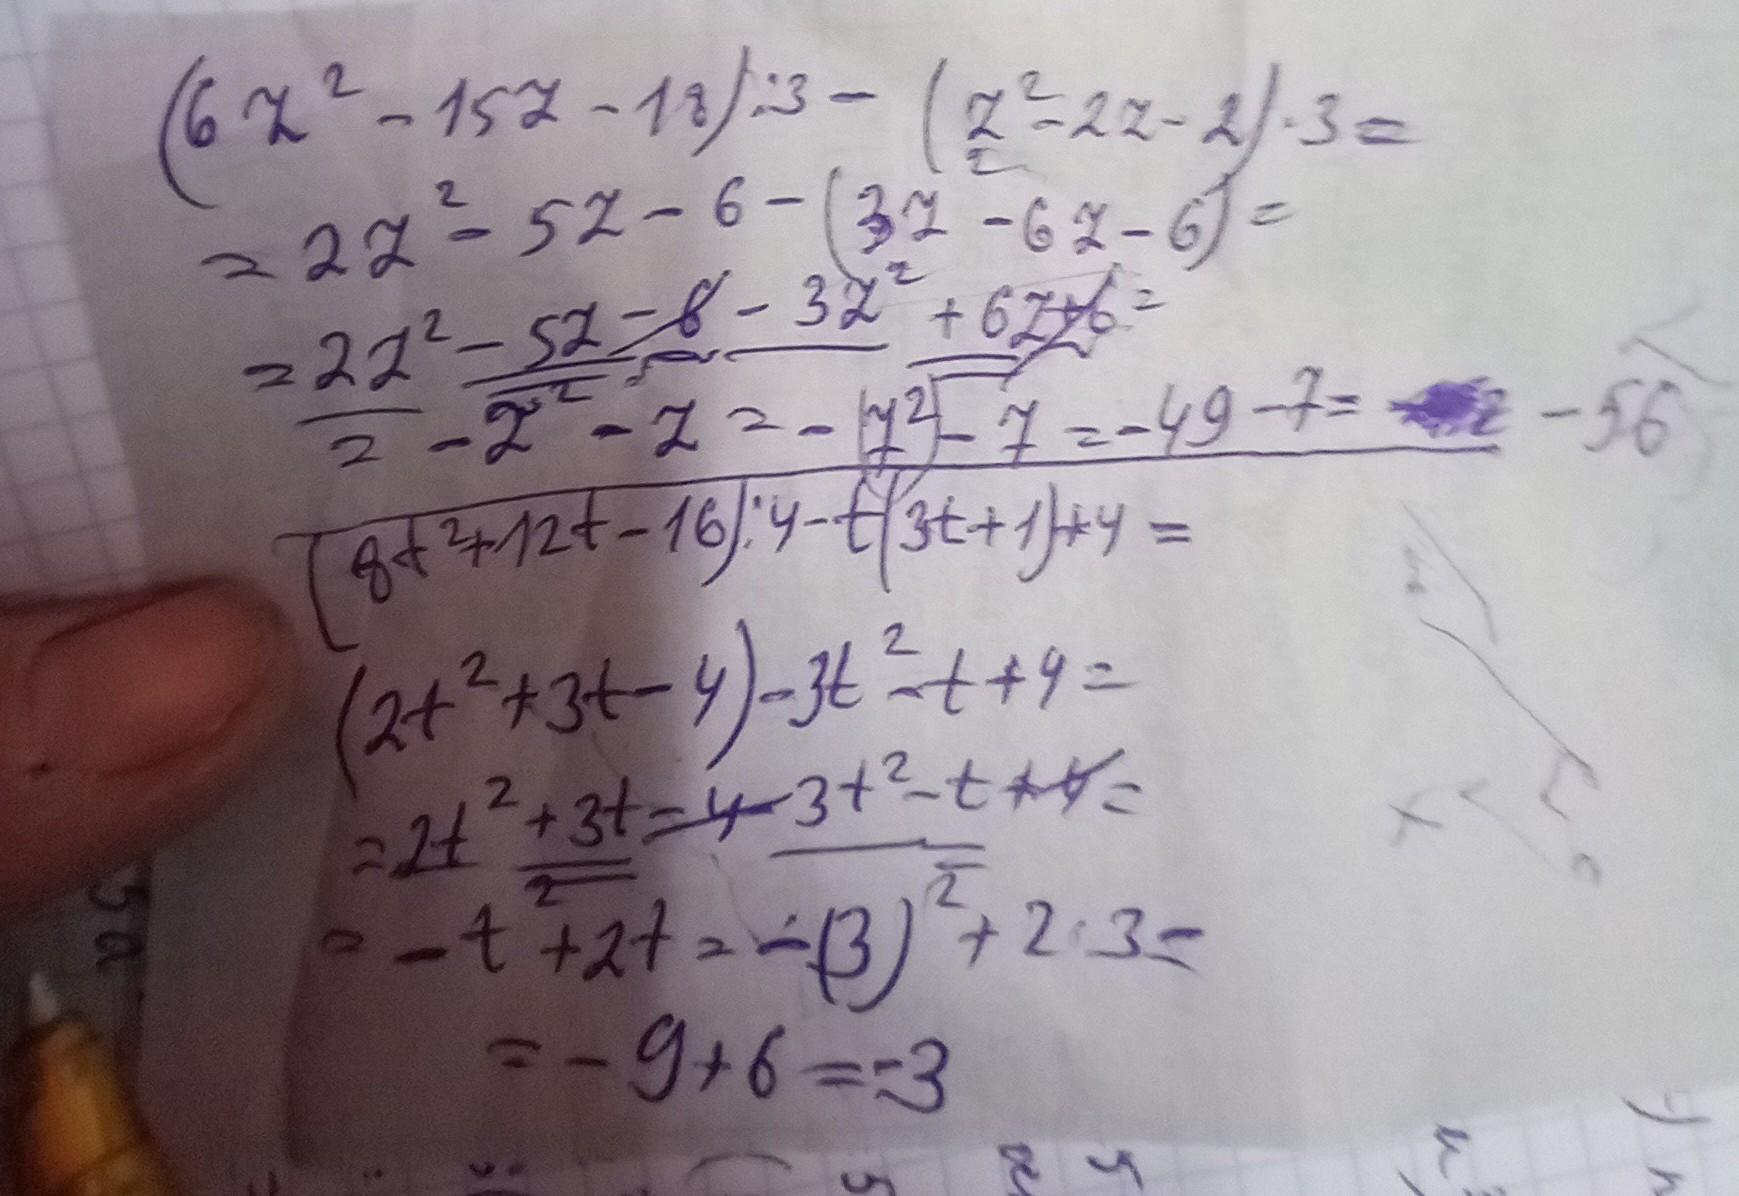 (6z² - 15z - 18) : 3 - (z² - 2z - 2) · 3 =
= 2z² - 5z - 6 - (3z² - 6z - 6) =
= 2z² - 5z - 6 - 3z² + 6z + 6 =
= - z² - z = - (7²) - 7 = - 49 - 7 = - 56
(8t² + 12t - 16) : 4 - t(3t + 1) + 4 =
(2t² + 3t - 4) - 3t² - t + 4 =
= 2t² + 3t - 4 - 3t² - t + 4 =
= - t² + 2t = - (3)² + 2 · 3 =
= - 9 + 6 = - 3